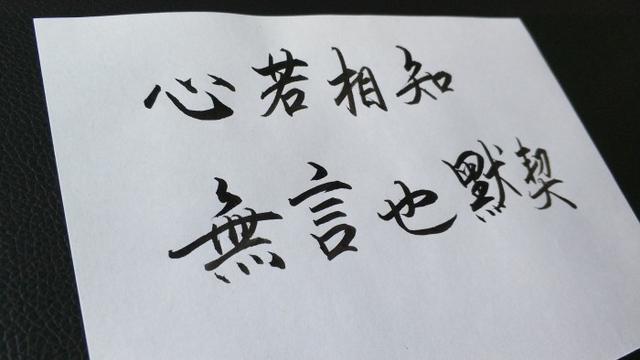 心若相知
無言也默契